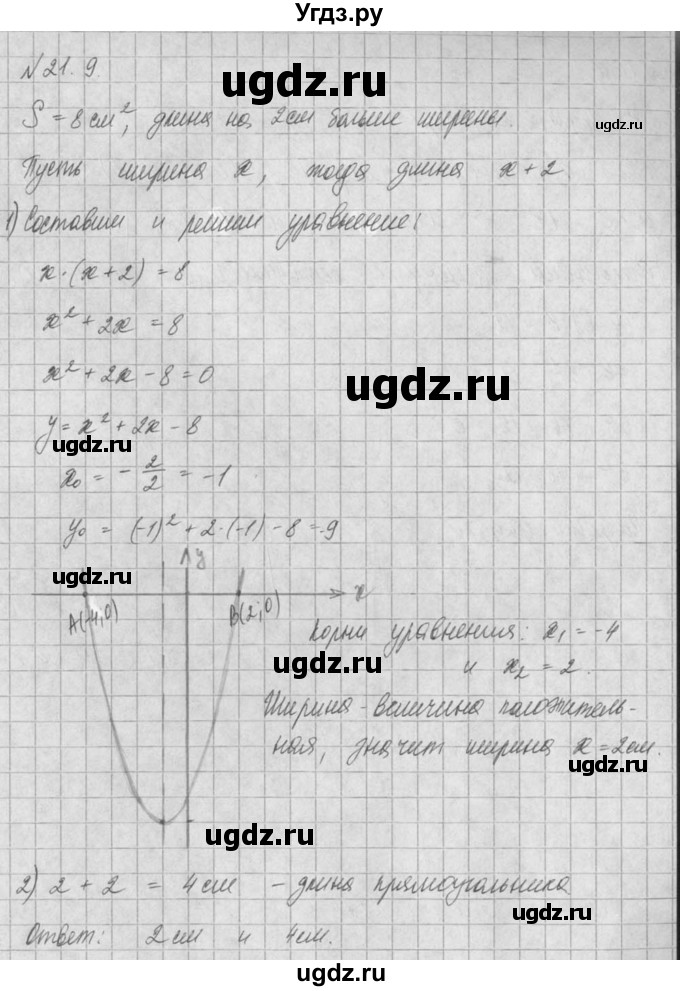 Угдз.ру
№21.9.
ugdz.ru
S = 8 см², длина на 2 см больше ширины.
ugdz.ru
Пусть ширина x, тогда длина x + 2.
1) Составим и решим уравнение:
x·(x+2) = 8
ugdz.ru
x² + 2x = 8
x² + 2x - 8 = 0
ugdz.ru
y = x² + 2x - 8
ugdz.ru
x₀ = - 2/2 = -1
ugdz.ru
y₀ = (-1)² + 2·(-1) - 8 = -9
y
x
A(-4;0)
B(2;0)
Корни уравнения: x₁ = -4
ugdz.ru
и x₂ = 2.
Ширина - величина положитель-
ная, значит ширина x = 2см.
ugdz.ru
ugdz.ru
2) 2 + 2 = 4 см - длина прямоугольника
Ответ: 2 см и 4 см.
ugdz.ru
ugdz.ru